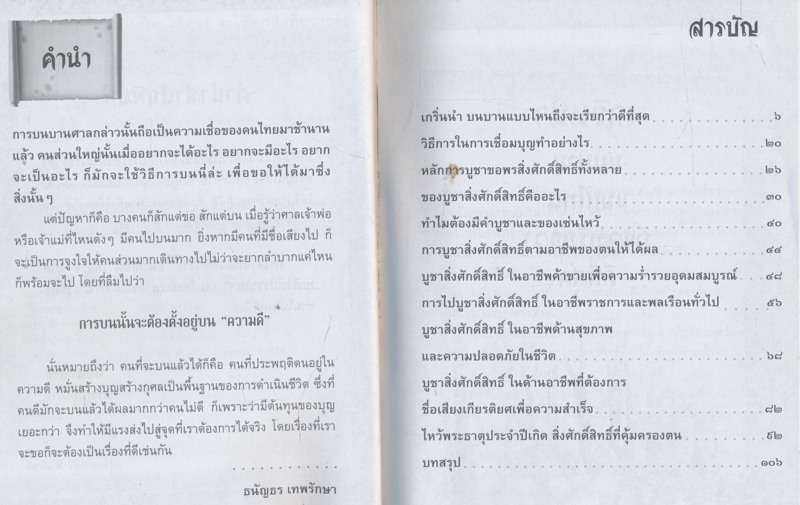 คำนำ
การบนบานศาลกล่าวนั้นถือเป็นความเชื่อของคนไทยมาช้านาน
แล้ว คนส่วนใหญ่นั้นเมื่ออยากจะได้อะไร อยากจะมีอะไร อยาก
จะเป็นอะไร ก็มักจะใช้วิธีการบนนี่ล่ะ เพื่อขอให้ได้มาซึ่ง
สิ่งนั้นๆ
แต่ปัญหาก็คือ บางคนก็สักแต่ขอ สักแต่บน เมื่อรู้ว่าศาลเจ้าพ่อ
หรือเจ้าแม่ที่ไหนดังๆ มีคนไปบนมาก ยิ่งหากมีคนที่มีชื่อเสียงไป ก็
จะเป็นการจูงใจให้คนส่วนมากเดินทางไปไม่ว่าจะยากลำบากแค่ไหน
ก็พร้อมจะไป โดยที่ลืมไปว่า
การบนนั้นจะต้องตั้งอยู่บน “ความดี”
นั่นหมายถึงว่า คนที่จะบนแล้วได้ก็คือ คนที่ประพฤติตนอยู่ใน
ความดี หมั่นสร้างบุญสร้างกุศลเป็นพื้นฐานของการดำเนินชีวิต ซึ่งที่
คนดีมักจะบนแล้วได้ผลมากกว่าคนไม่ดี ก็เพราะว่ามีต้นทุนของบุญ
เยอะกว่า จึงทำให้มีแรงส่งไปสู่จุดที่เราต้องการได้จริง โดยเรื่องที่เรา
จะขอก็จะต้องเป็นเรื่องที่ดีเช่นกัน
..........
ธนัญธร เทพรักษา
สารบัญ
เกริ่นนำ บนบานแบบไหนถึงจะเรียกว่าดีที่สุด ๖
วิธีการในการเชื่อมบุญทำอย่างไร ๒๐
หลักการบูชาขอพรสิ่งศักดิ์สิทธิ์ทั้งหลาย ๒๖
ของบูชาสิ่งศักดิ์สิทธิ์คืออะไร ๓๐
ทำไมต้องมีคำบูชาและของเซ่นไหว้ ๔๐
การบูชาสิ่งศักดิ์สิทธิ์ตามอาชีพของตนให้ได้ผล ๔๔
บูชาสิ่งศักดิ์สิทธิ์ ในอาชีพค้าขายเพื่อความร่ำรวยอุดมสมบูรณ์ ๔๘
การไปบูชาสิ่งศักดิ์สิทธิ์ ในอาชีพราชการและพลเรือนทั่วไป ๕๖
บูชาสิ่งศักดิ์สิทธิ์ ในอาชีพด้านสุขภาพ
และความปลอดภัยในชีวิต ๖๘
บูชาสิ่งศักดิ์สิทธิ์ ในด้านอาชีพที่ต้องการ
ชื่อเสียงเกียรติยศเพื่อความสำเร็จ ๘๒
ไหว้พระธาตุประจำปีเกิด สิ่งศักดิ์สิทธิ์ที่คุ้มครองตน ๙๒
บทสรุป ๑๐๖